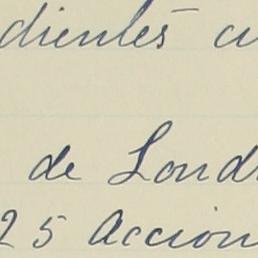 dientes cu
de Lond
25 Accion